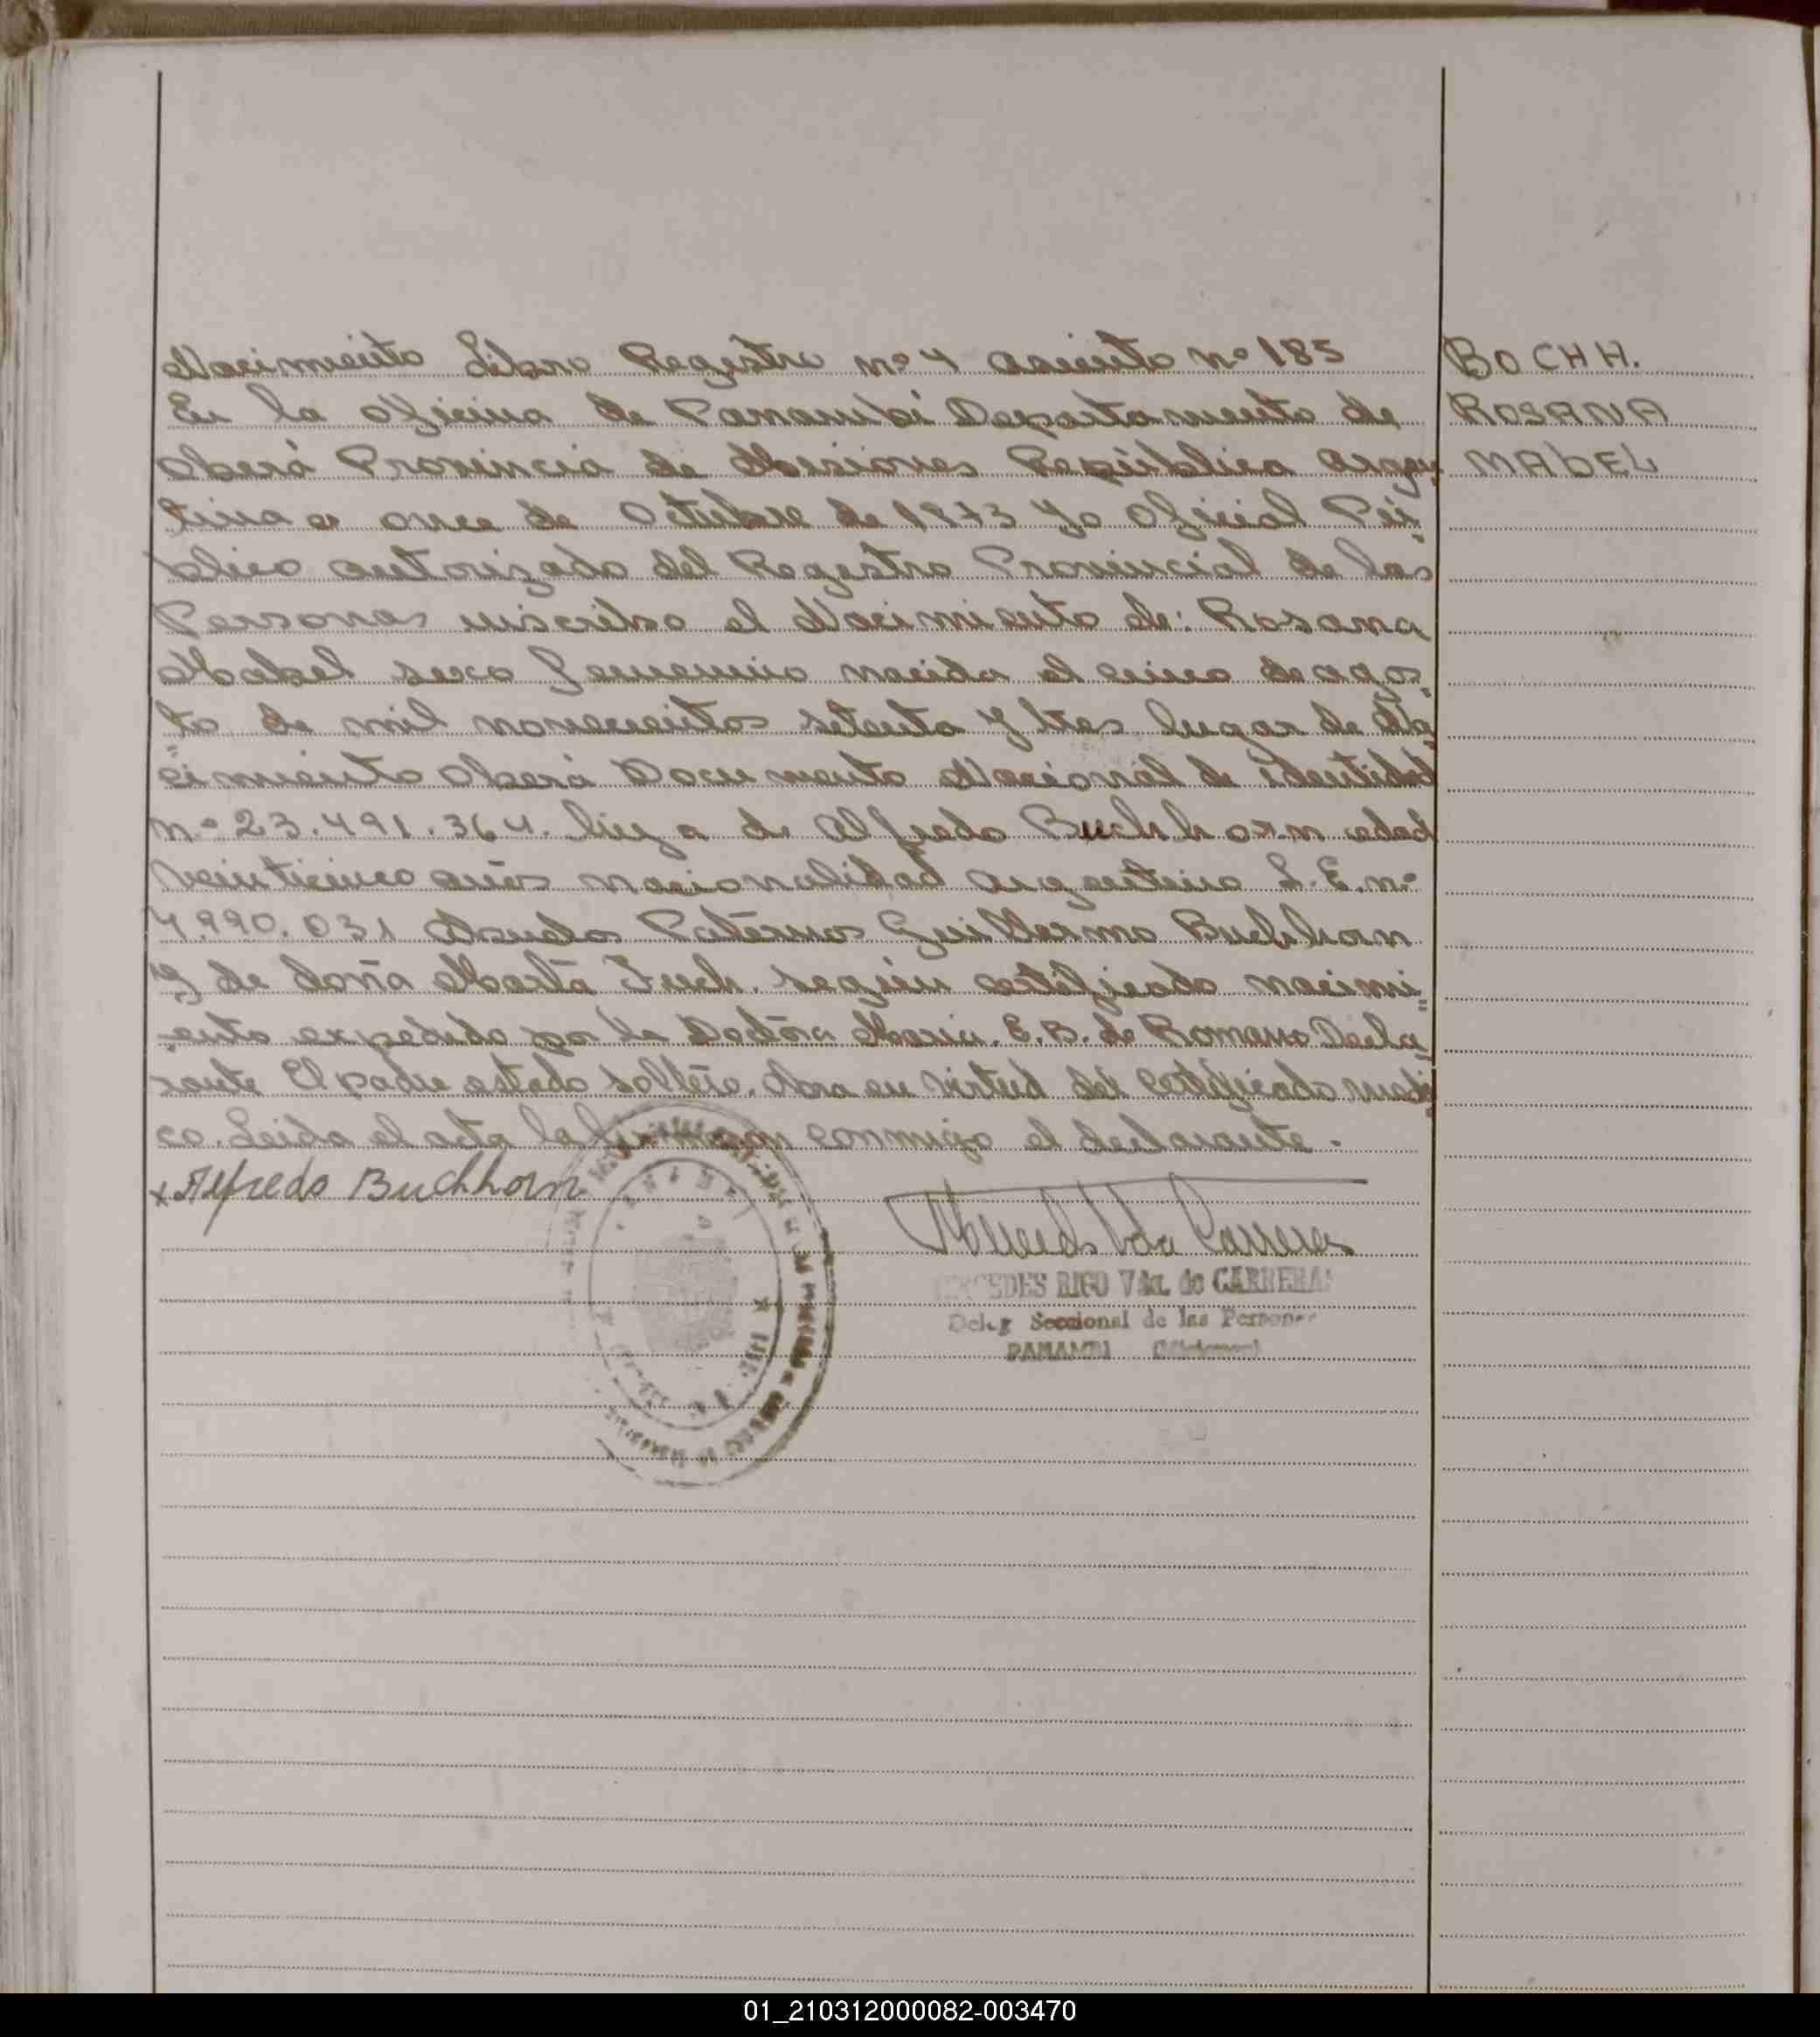 Nacimiento Libro Registro nº 4 asiento nº 185
BOCHH.
En la oficina de Panambí Departamento de
ROSANA
Oberá Provincia de Misiones República Argen
MAbEL
tina a once de Octubre de 1973 yo Oficial Pú
blico autorizado del Registro Provincial de las
Personas inscribo el Nacimiento de: Rosana
Mabel sexo femenino nacida el cinco de agos
to de mil novecientos setenta y tres lugar de Na
cimiento Oberá Documento Nacional de identidad
n.º 23.491.364. hija de Alfredo Buchhorn edad
veinticinco años nacionalidad argentino L.E. nº
4.990.031 Paternos Guillermo Buchhorn
y de doña Marta según certificado nacimi
ento expedido por la Doctora María. E. B. de Romero Decla
rante El padre estado soltero. Obra en virtud del certificado medi
co. Leida el acta la firman conmigo el declarante.
x Alfredo Buchhorn
Mercedes Vda Carreras
MERCEDES RIGO Vda. de CARRERAS
Deleg Seccional de las Personas
PANAMBI (Misiones)
01_210312000082-003470